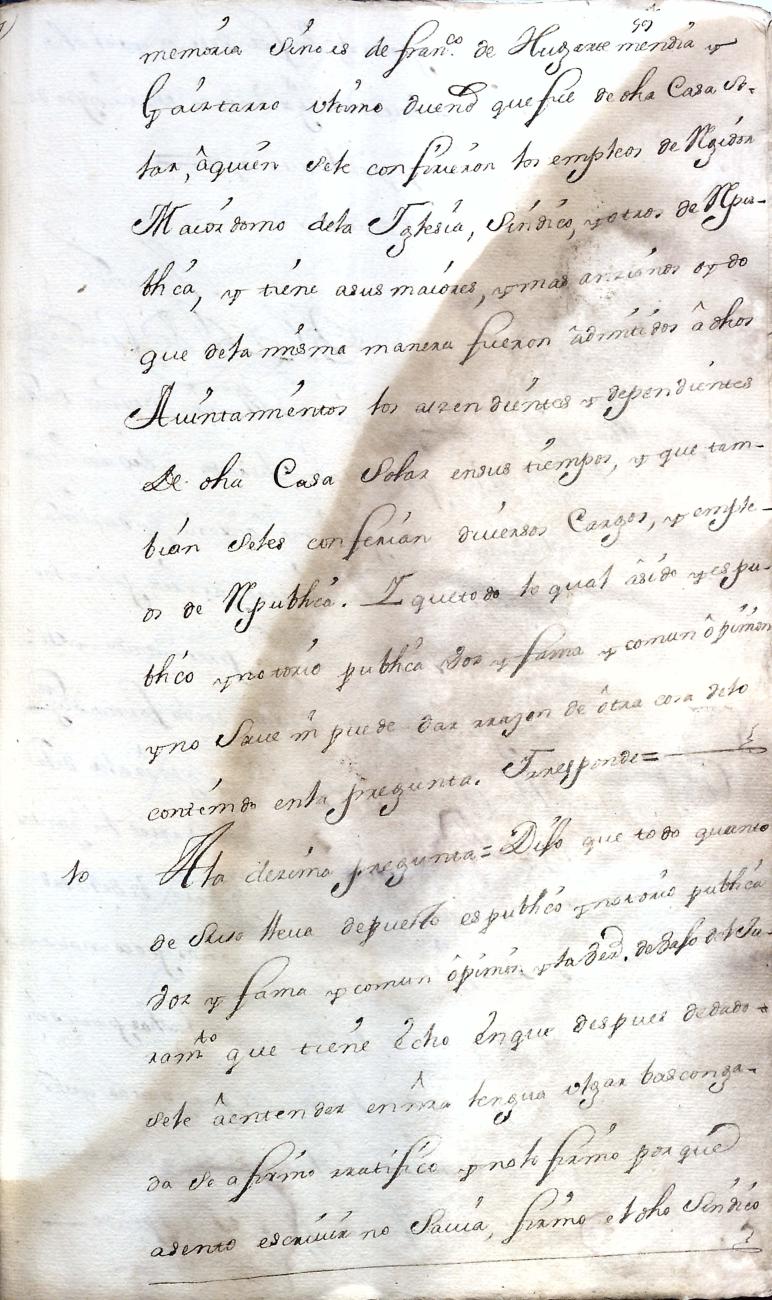 memória Sino es de fran.co de Hugarte mendía y
Gaiztarro ultimo dueño que fue de dha Casa So-
lar, âquien sele confirieron los empleos de Rejidor
Maiordomo dela Iglesia, Síndico, y otros de Repu-
blica, y tiene asus maiores, y mas anzianos oydo
que dela misma manera fueron âdmitidos â dhos
Aiuntamientos los aszendientes y dependientes
De dha Casa Solar ensus tiempos, y que tam-
bián seles conferían diversos Cargos, y emple-
os de Republica. I quetodo lo qual âsido y espu-
blico ynotorio publica voz y fama y comun ôpinion
yno Save ni puede dar rrazon de ôtra cosa delo
contenido enla pregunta. Irresponde=
10 Ala dezima pregunta= Dijo que todo quanto
de suso lleva depuesto espublico ynotorio publica
voz y fama y comun ôpinion. yla verd. debajo del Ju-
ram.to que tiene êcho ênque despues dedado-
sele âentender en nra lengua vlgar basconga-
da se afirmo rratifico ynolo firmo porque
asento escrivir no Savia, firmo el dho Síndico